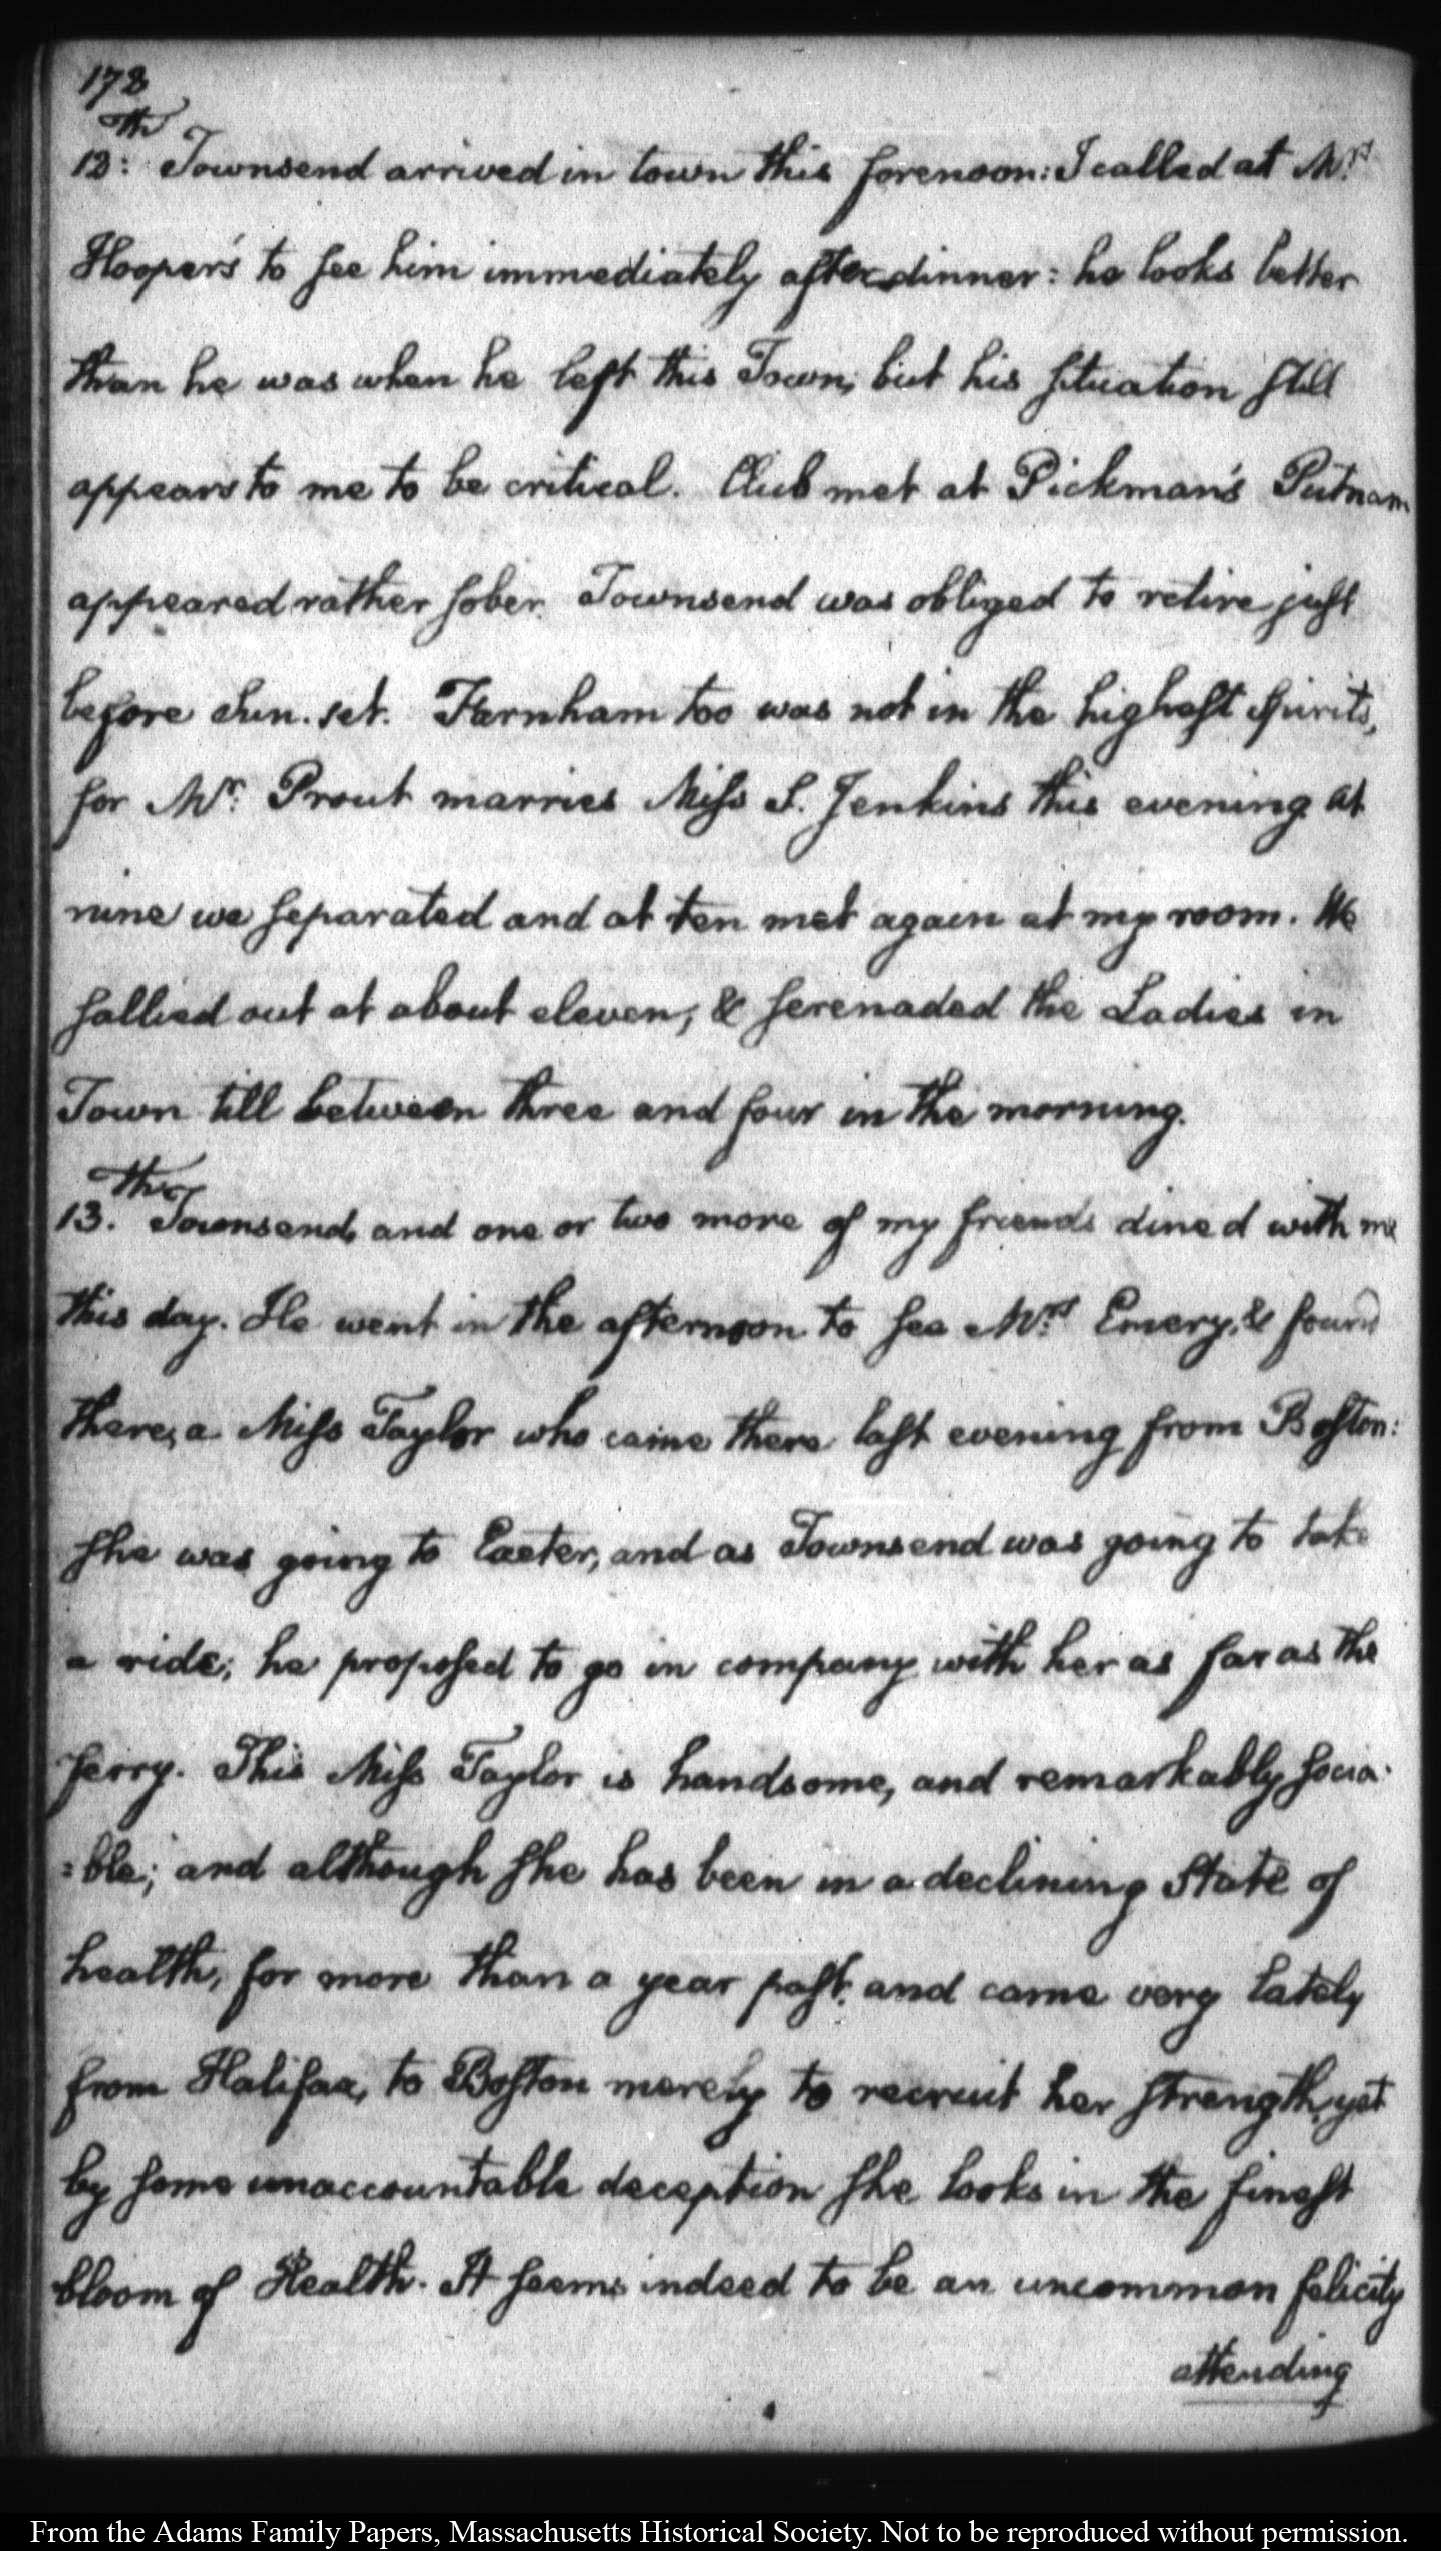 178
th
12: Townsend arrived in town this forenoon: I called at Mrs
Hooper's to see him immediately after dinner: he looks better
than he was when he left this Town; but his situation still
appears to me to be critical. Club met at Pickman's Putnam
appeared rather sober. Townsend was obliged to retire just
before Sun. set. Farnham too was not in the highest spirits,
for Mr. Prout marries Miss S. Jenkins this evening. At
nine we separated and at ten met again at my room. We
sallied out at about eleven, & serenaded the Ladies in
Town till between three and four in the morning.
th
13. Townsend, and one or two more of my friends dined with me
this day. He went in the afternoon to see Mrs. Emery, & found
there, a Miss Taylor who came there last evening from Boston:
she was going to Exeter, and as Townsend was going to take
a ride; he proposed to go in company with her as far as the
ferry. This Miss Taylor is handsome, and remarkably socia-
=ble; and although she has been in a declining State of
health, for more than a year past, and came very lately
from Halifax, to Boston merely to recruit her strength, yet
by some unaccountable deception she looks in the finest
bloom of Health. It seems indeed to be an uncommon felicity
attending
From the Adams Family Papers, Massachusetts Historical Society. Not to be reproduced without permission.